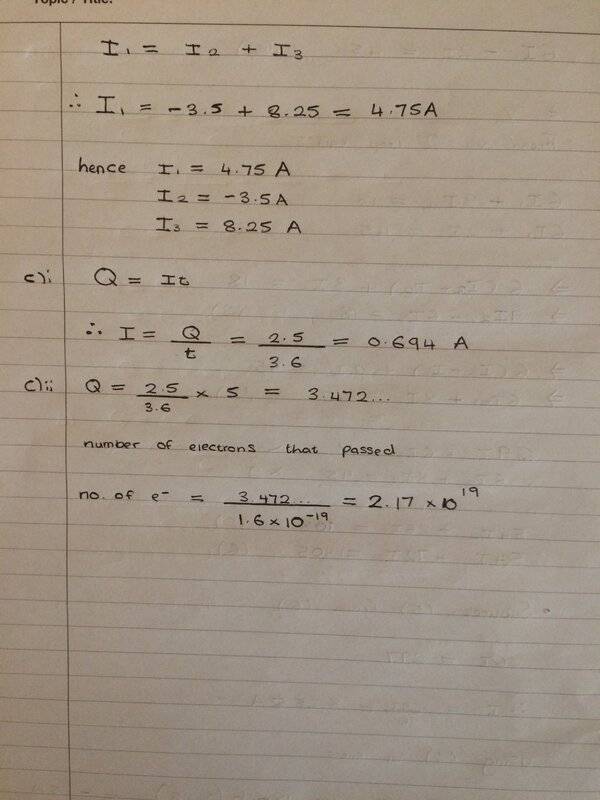 Topic / Title:
I₁ = I₂ + I₃
∴ I₁ = -3.5 + 8.25 = 4.75A
hence I₁ = 4.75 A
I₂ = -3.5A
I₃ = 8.25 A
c)i Q = It
∴ I = Q/t = 2.5/3.6 = 0.694 A
c)ii Q = 2.5/3.6 × 5 = 3.472...
number of electrons that passed
no. of e⁻ = 3.472.../1.6 × 10⁻¹⁹ = 2.17 × 10¹⁹